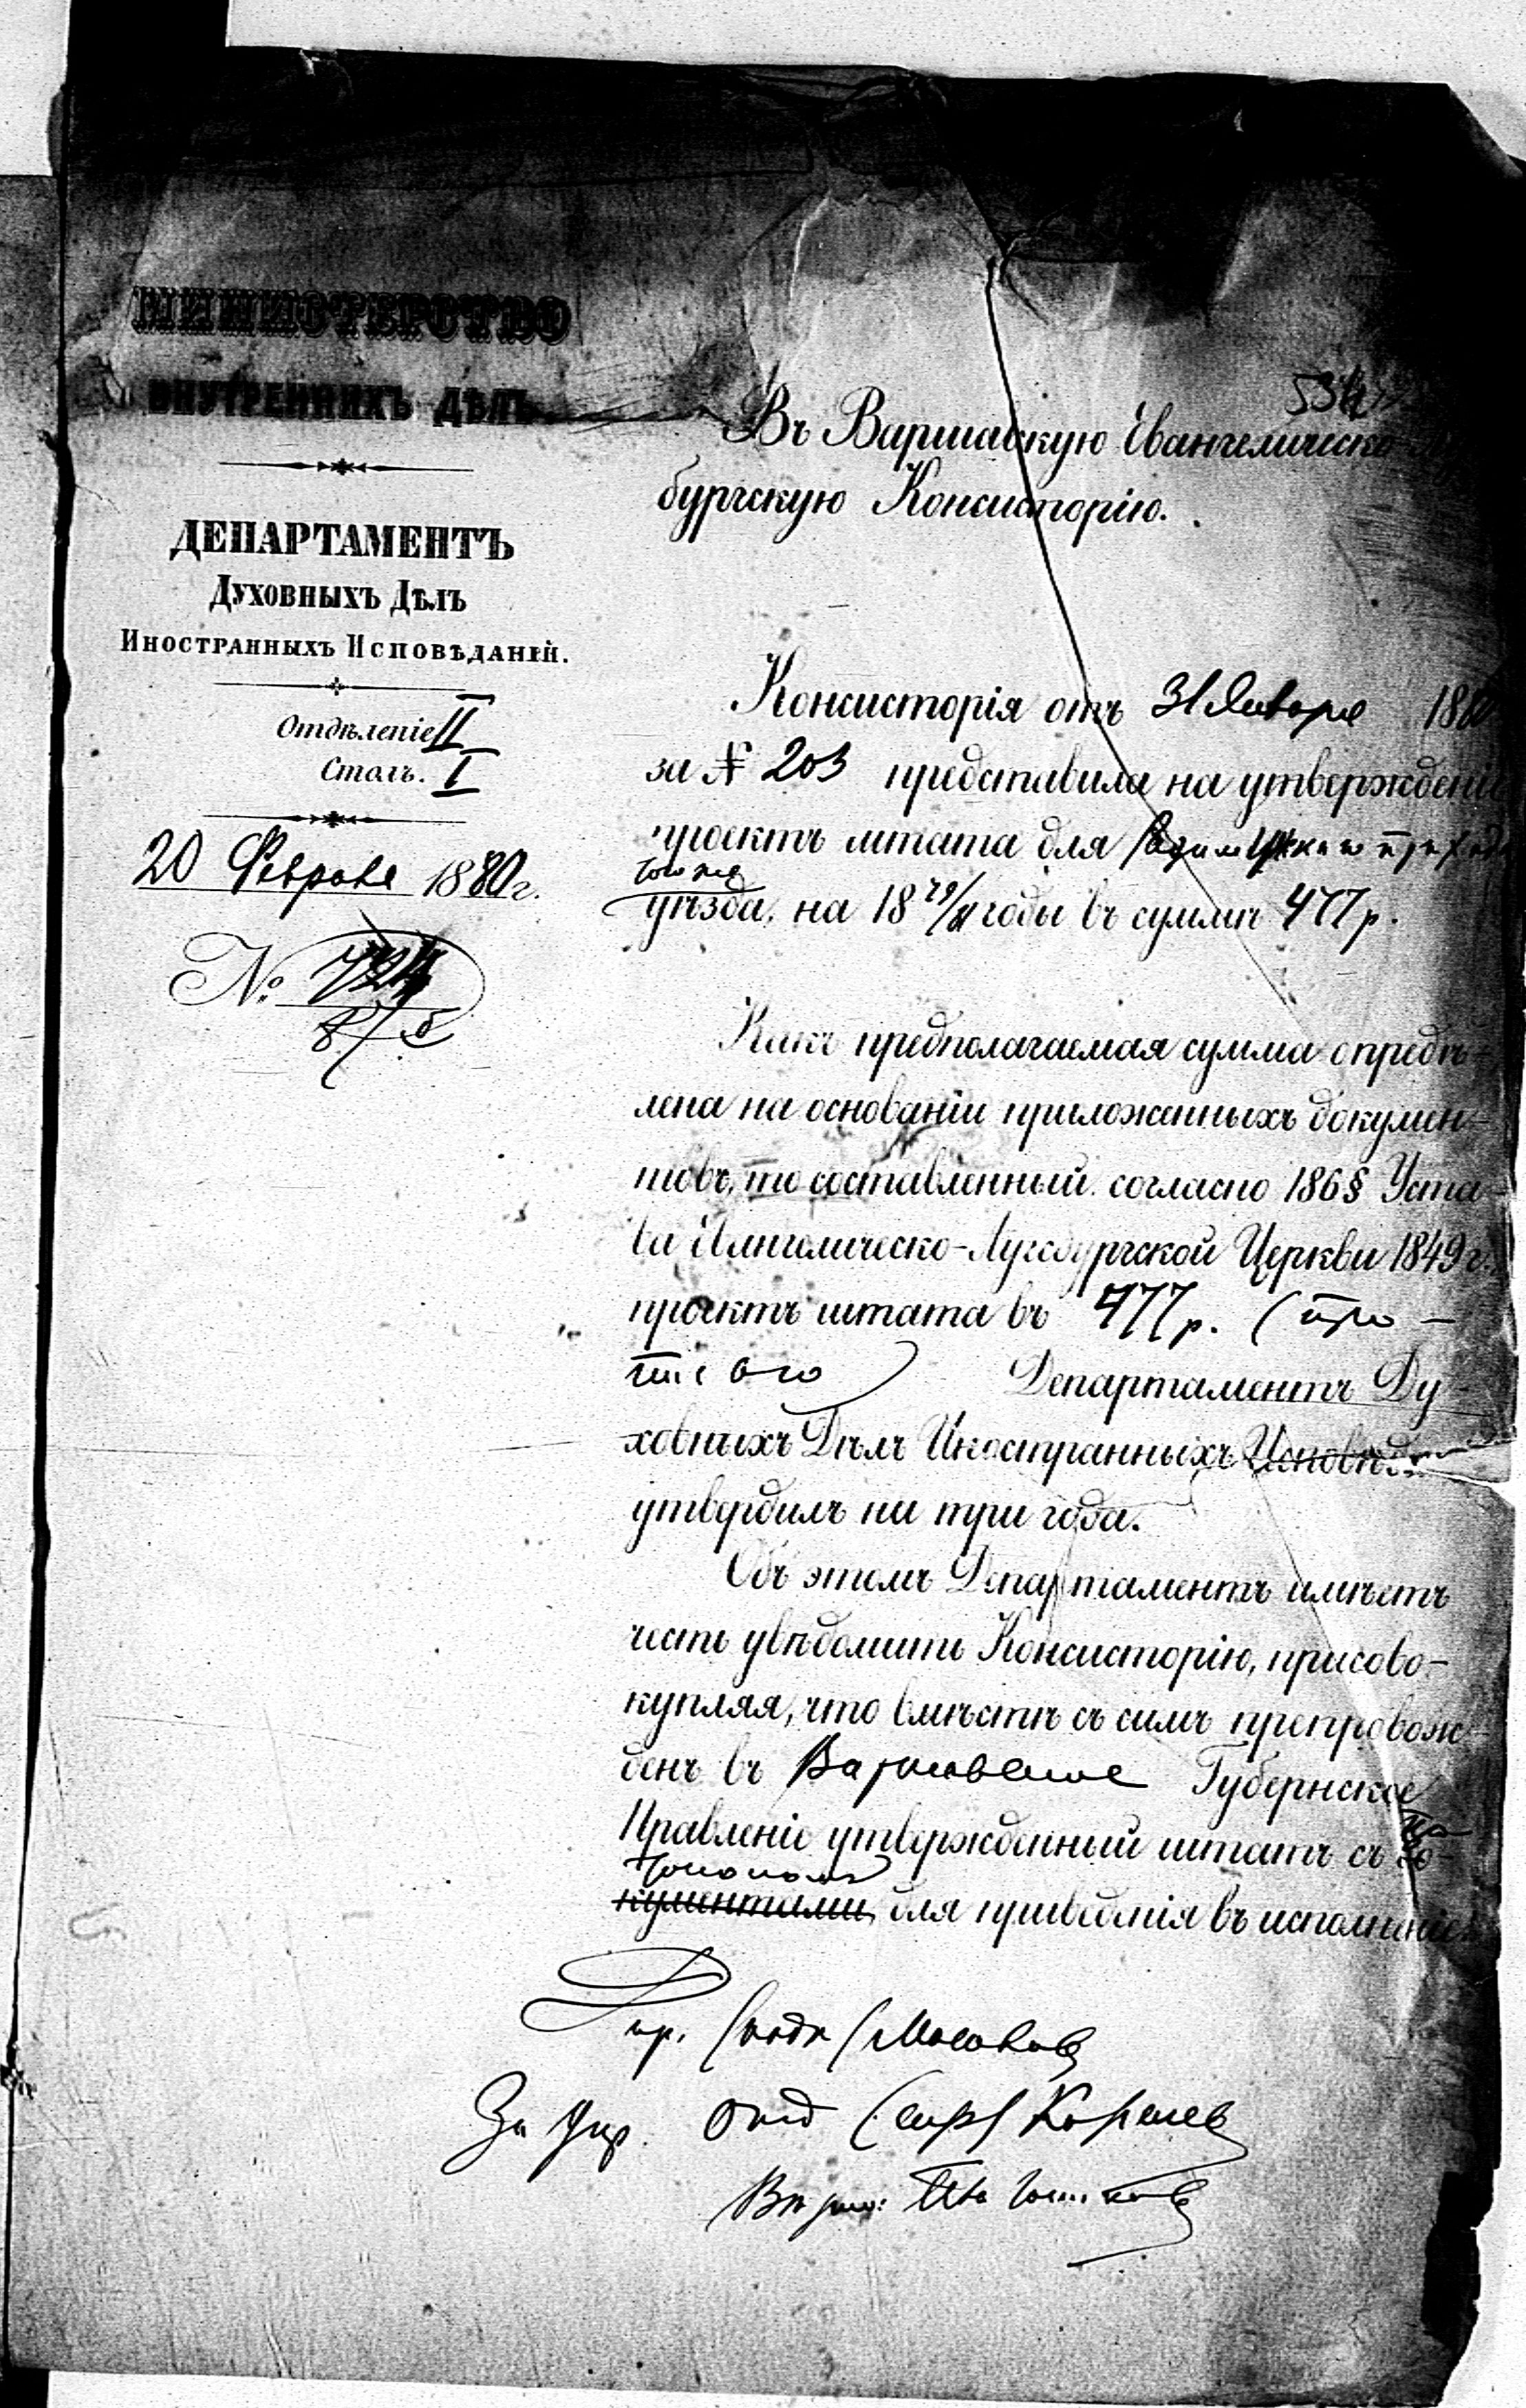 МИНИСТЕРСТВО
ВНУТРЕННИХЪ ДѢЛЪ
ДЕПАРТАМЕНТЪ
ДУХОВНЫХЪ ДѢЛЪ
ИНОСТРАННЫХЪ ИСПОВѢДАНІЙ.
Отдѣленіе II
Столъ. I
20 Февраля 1880 г.
№ 724
Въ Варшавскую Евангелическо
бургскую Консисторію.
Консисторія отъ 31 Января 188
за № 203 представила на утвержденіе
проектъ штата для прихода
того же
уѣзда, на 18 79/81 годы въ суммѣ 477 р.
Какъ предполагаемая сумма опредѣ-
лена на основаніи приложенныхъ докумен-
товъ, то составленный согласно 186 § Уста-
ва Евангелическо-Аугсбургской Церкви 1849 г.
проектъ штата въ 477 р. (про-
тивъ
) Департаментъ Ду-
ховныхъ Дѣлъ Иностранныхъ Исповѣд
утвердилъ на три года.
Объ этомъ Департаментъ имѣетъ
честь увѣдомить Консисторію, присово-
купляя, что вмѣстѣ съ симъ препровож-
денъ въ Варшавское Губернское
Правленіе утвержденный штатъ съ до-
кументами для приведенія въ исполненіе.